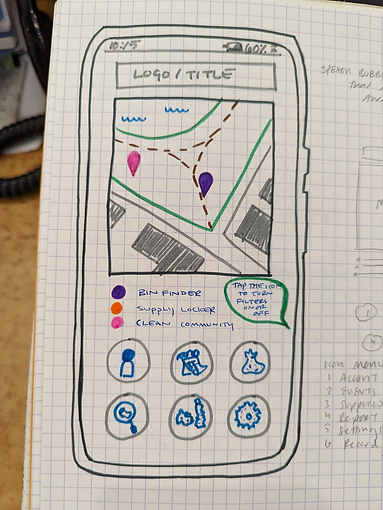 10:15 60%
LOGO/TITLE
BIN FINDER
SUPPLY LOCKER
CLEAN COMMUNITY
TAP THE ICON
TO TURN
FILTERS
ON OR
OFF
SPEECH BUBB
that
An
M
1
4
ICON MENU
1 Account
2 EVENTS
3 Supplies
4 Report
5 Settings
6 Record